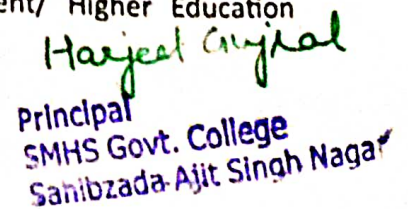 ent/ Higher Education
Harjeet Gujral
Principal
SMHS Govt. College
Sahibzada Ajit Singh Nagar